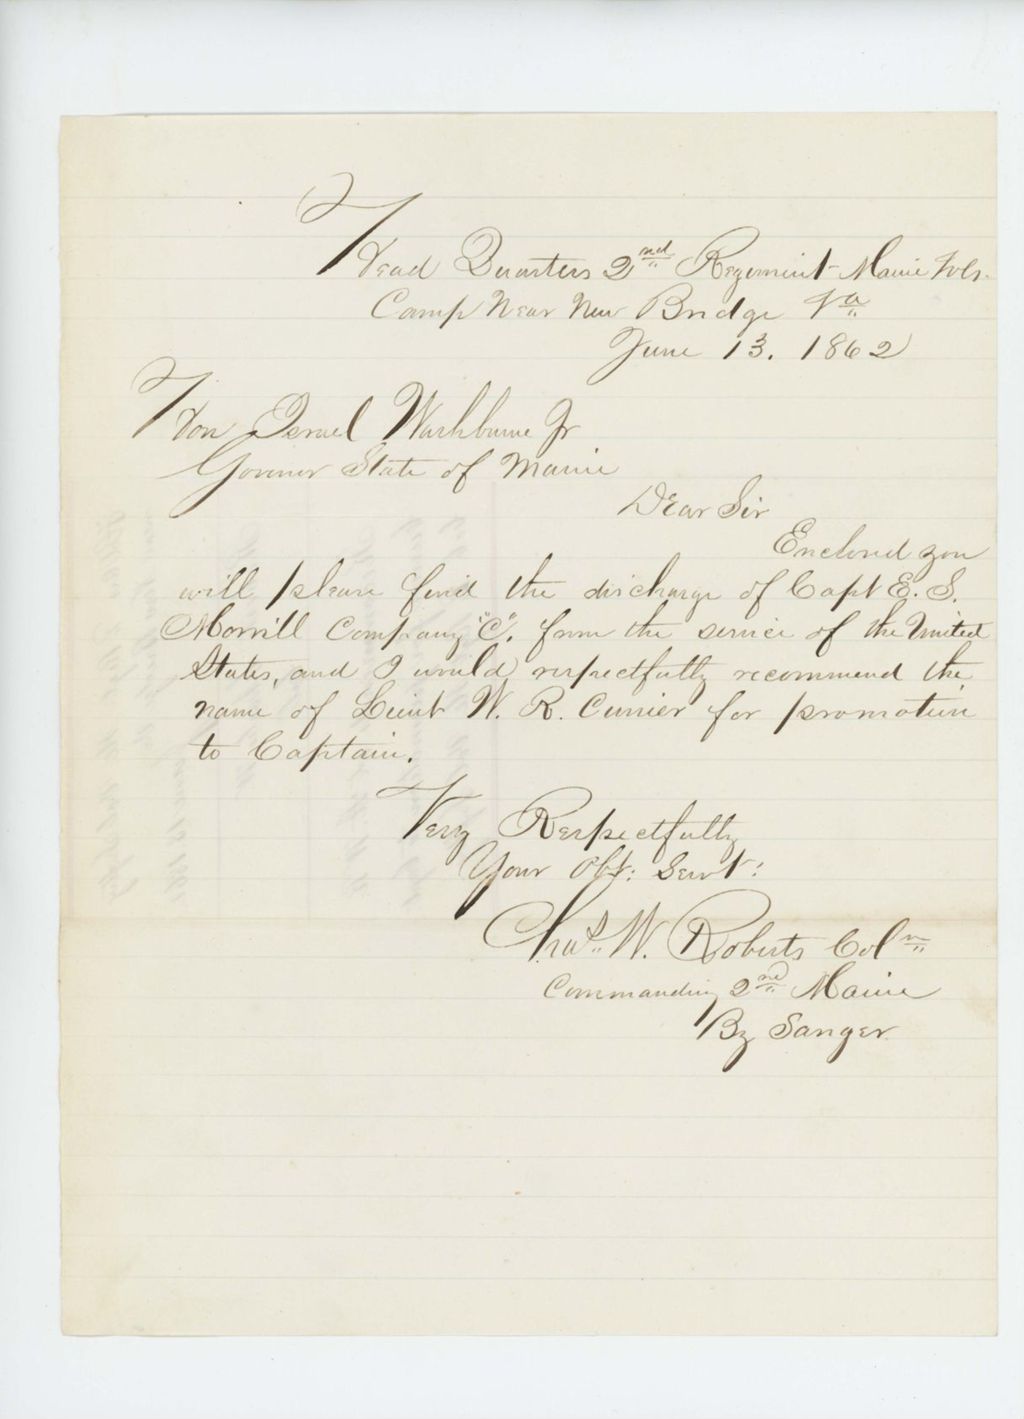 Head Quarters 2nd Regiment Maine Vols.
Camp Near New Bridge Va
June 13. 1862
Hon Israel Washburne Jr
Governor State of Maine
Dear Sir
Enclosed you
will please find the discharge of Capt E. S.
Morrill Company "C". from the service of the United
States, and I would respectfully recommend the
name of Lieut W. R. Currier for promotion
to Captain.
Very Respectfully
Your Obt: Servt:
Chas. W. Roberts Col
Commanding 2nd Maine
By Sanger